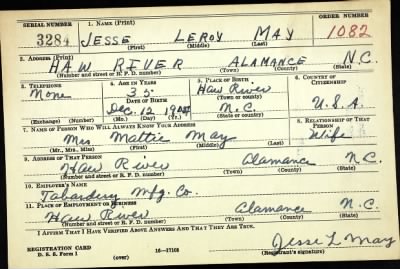 SERIAL NUMBER 1. NAME (Print) ORDER NUMBER
3284 JESSE LEROY MAY 1082
(First) (Middle) (Last)
2. ADDRESS (Print)
HAW RIVER ALAMANCE N.C.
(Number and street or R. F. D. number) (Town) (County) (State)
3. TELEPHONE 4. AGE IN YEARS 5. PLACE OF BIRTH 6. COUNTRY OF CITIZENSHIP
None 35 Haw River
DATE OF BIRTH (Town or county)
Dec. 12 N.C. U.S.A.
(Exchange) (No.) (Mo.) (Day) (Yr.) (State or country)
7. NAME OF PERSON WHO WILL ALWAYS KNOW YOUR ADDRESS 8. RELATIONSHIP OF THAT PERSON
Mrs Mattie May Wife
(Mr., Mrs., Miss) (First) (Middle) (Last)
9. ADDRESS OF THAT PERSON
Haw River Alamance N.C.
(Number and street or R. F. D. number) (Town) (County) (State)
10. EMPLOYER'S NAME
Tabardry Mfg. Co.
11. PLACE OF EMPLOYMENT OR BUSINESS
Haw River Alamance N.C.
(Number and street or R. F. D. number) (Town) (County) (State)
I AFFIRM THAT I HAVE VERIFIED ABOVE ANSWERS AND THAT THEY ARE TRUE.
REGISTRATION CARD
D. S. S. Form 1 16—17105 Jesse L May
(over) (Registrant's signature)